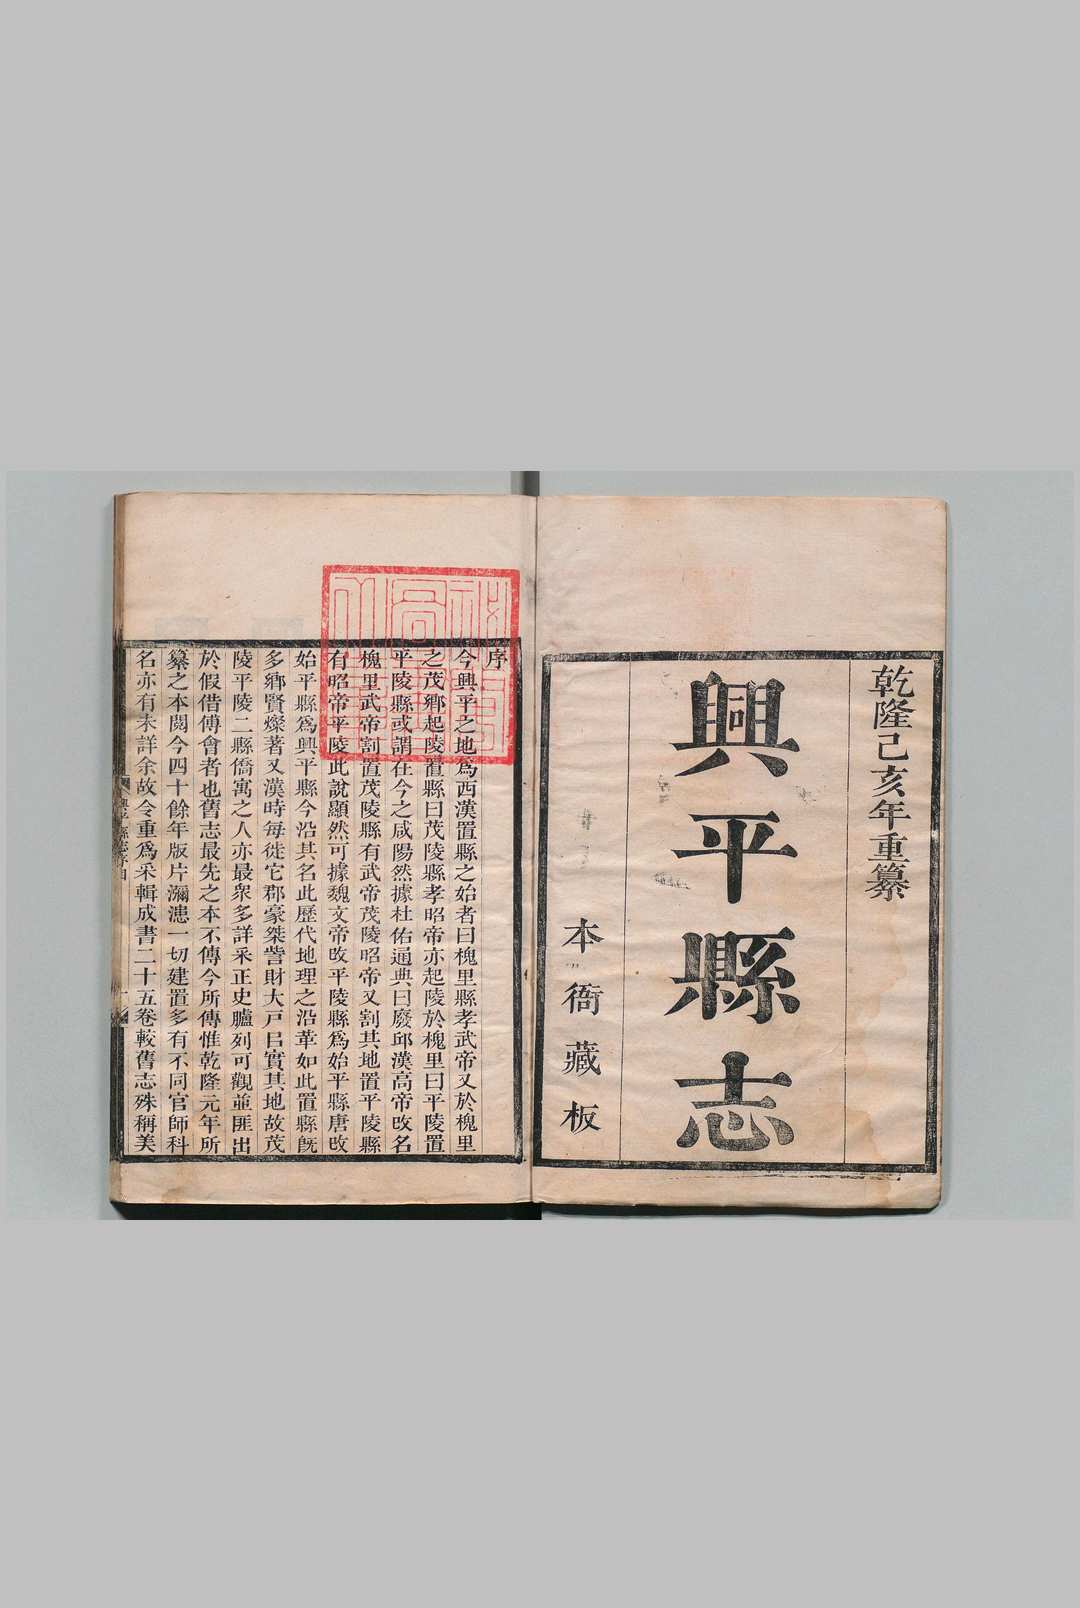 乾隆己亥年重纂
興平縣志
本衙藏板
序
今興平之地爲西漢置縣之始者曰槐里縣孝武帝又於槐里
之茂鄉起陵置縣曰茂陵縣孝昭帝亦起陵於槐里曰平陵置
平陵縣或謂在今之咸陽然據杜佑通典曰廢邱漢高帝改名
槐里武帝割置茂陵縣有武帝茂陵昭帝又割其地置平陵縣
有昭帝平陵此說顯然可據魏文帝改平陵縣爲始平縣唐改
始平縣爲興平縣今沿其名此歷代地理之沿革如此置縣既
多鄉賢燦著又漢時每徙它郡豪桀訾財大戸㠯實其地故茂
陵平陵二縣僑寓之人亦最衆多詳采正史臚列可觀並匪出
於假借傅會者也舊志最先之本不傳今所傳惟乾隆元年所
纂之本閲今四十餘年版片瀰漶一切建置多有不同官師科
名亦有未詳余故令重爲采輯成書二十五卷較舊志殊稱美